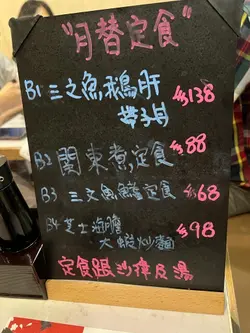 "月替定食"
B1 三文魚,鵝肝 $138
帶子丼
B2 関東煮,定食 $88
B3 三文魚魚醬定食 $68
B4 芝士海膽 $98
大蝦炒麵
定食跟沙律及湯